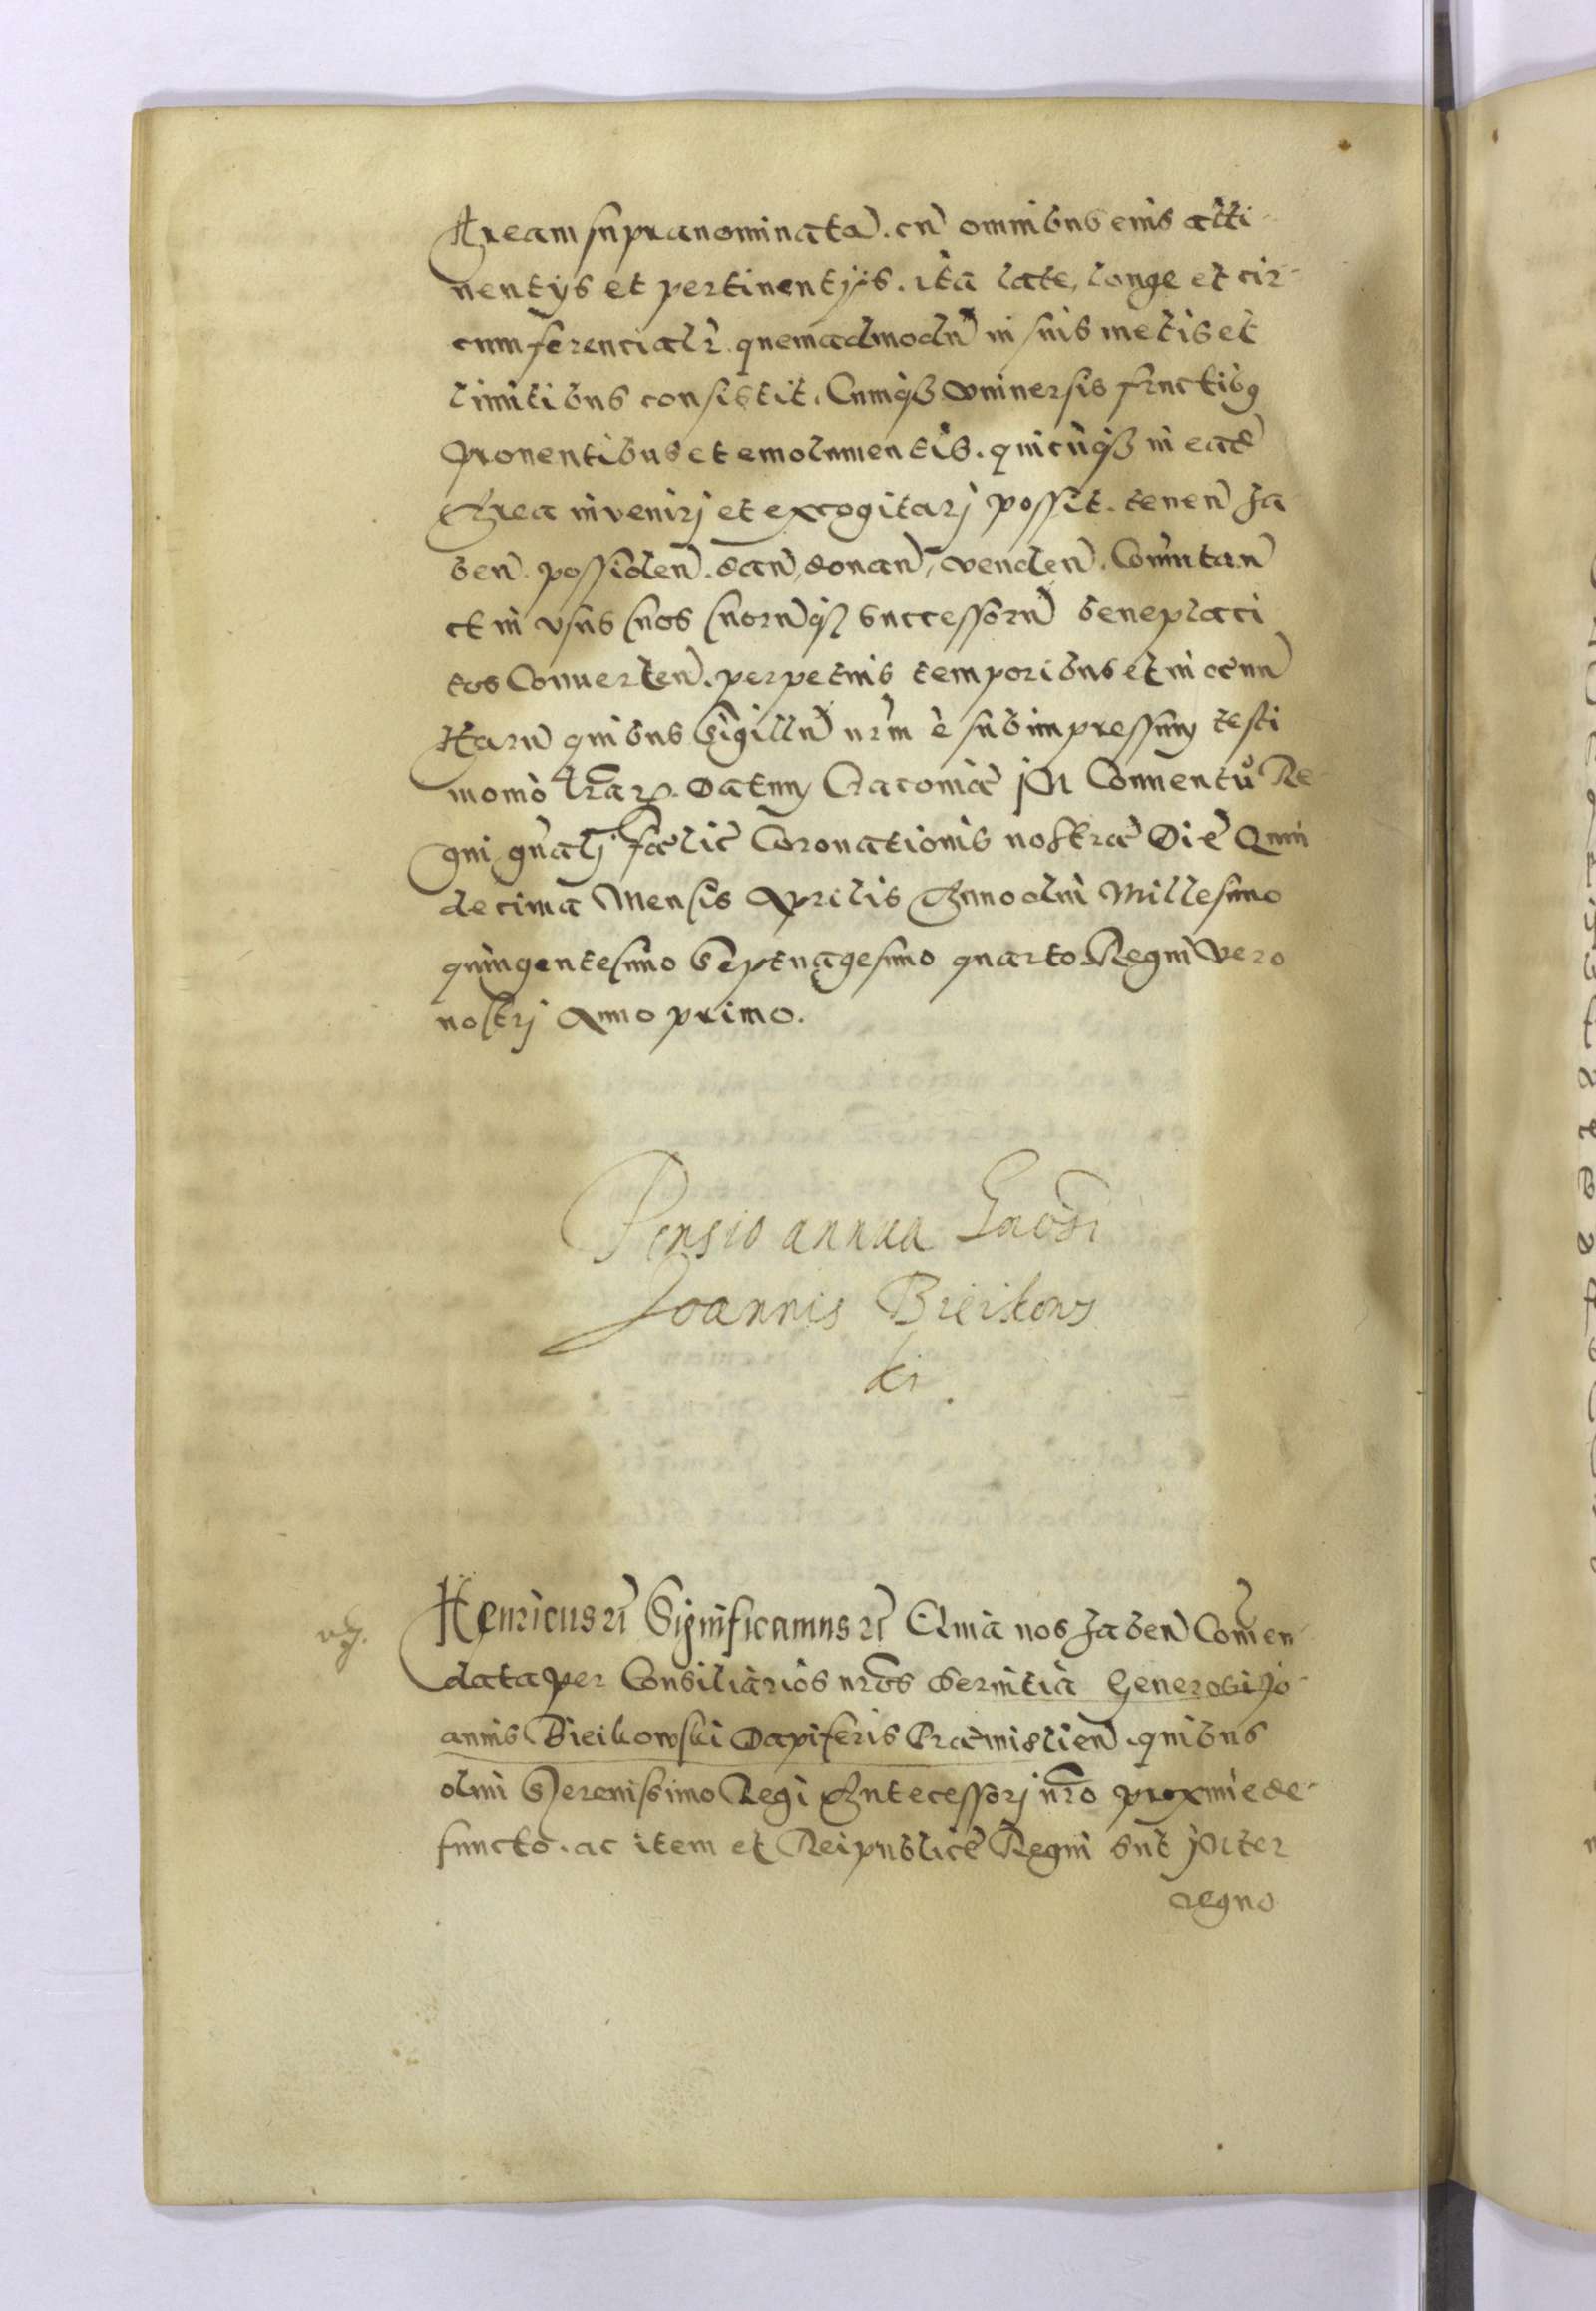 Aream supranominatã. cũ omnibus eius atti-
nentijs et pertinentijs. ita late, longe et cir-
cumferencialr̃. quemadmodũ in suis metis et
limitibus consistit. Cumqꝫ vniuersis fructibꝰ
Prouentibus et emolumentis. quicũqꝫ in eadẽ
Area invenirj et excogitarj possit. tenen̄ ha
ben̄. possiden̄. dan̄, donan̄, venden̄. Com̃utan̄
et in vsus suos suorũqꝫ Successorũ beneplaci
tos Conuerten̄. perpetuis temporibus et in æuũ
Harũ quibus Sigillũ nr̃m ẽ subimpressum testi
monio lr̃arꝝ. Datum Cracouiæ IN Conuentu Re-
gni gñalj fælic̃ Coronationis nostræ Die Quin
decima Mensis Aprilis Anno dñi Millesimo
quingentesimo Septuagesimo quarto Regni vero
nostrj Anno primo.
Pensio annua Gñosi
Joannis Bieikows
ki.
Henricus rc̃ Significamus rc̃ Quia nos haben̄ Com̃en
data per Consiliarios nr̃os Seruitia Generosi Jo-
annis Bieikowski Dapiferis Præmislien̄. quibus
olim Serenissimo Regi Antecessorj nr̃o proxime de-
functo. ac item et Reipublicæ Regni sub jnter
regno